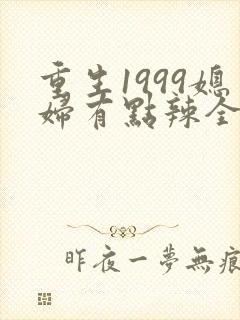 重生1999媳
婦有點辣全
昨夜一夢無痕